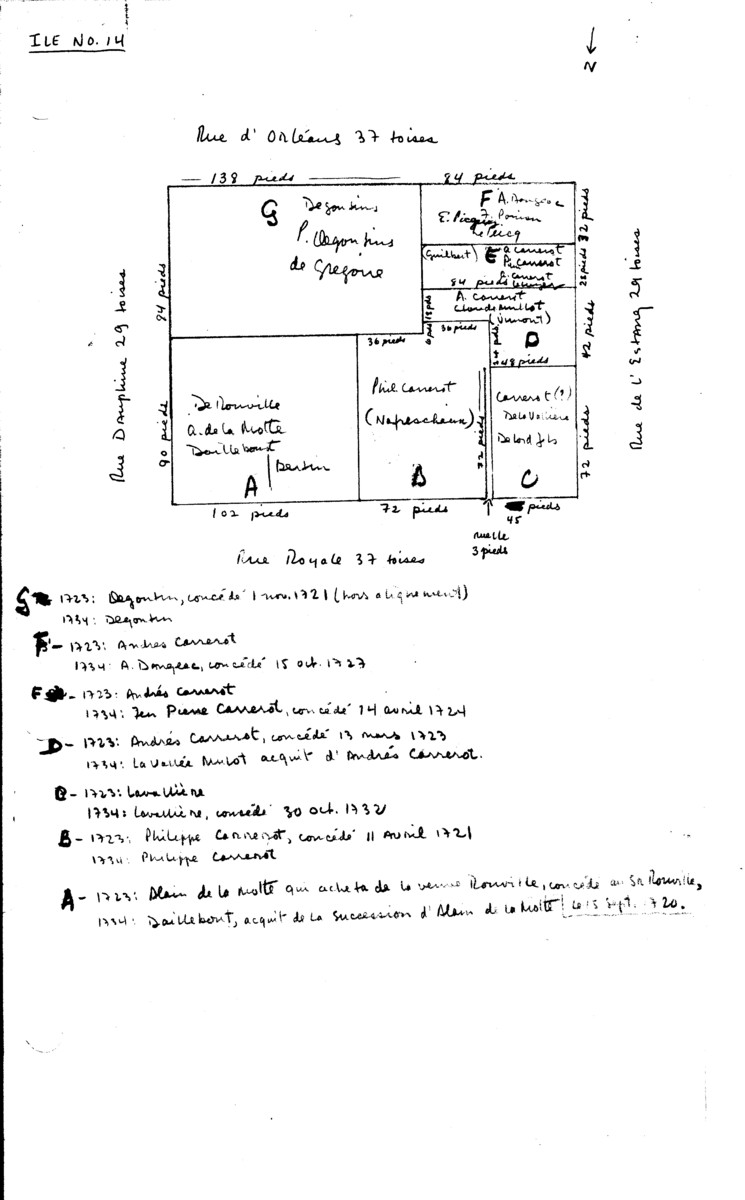 ILE NO. 14
N
Rue d'Orléans 37 toises
138 pieds
84 pieds
G
Degoutins
P. Degoutins
de Gregoire
F A. Dangeac
E. Picq
F. Poirier
Le Picq
32 pieds
(Guilbert) E A Carrerot
P. Carrerot
P. Carrerot
84 pieds
28 pieds
A. Carrerot
Claude Mullot
(Vimont)
D
18 pds
6 pds
36 pieds
36 pieds
24 pds
48 pieds
42 pieds
94 pieds
Rue Dauphine 29 toises
Rue de l'Estang 29 toises
90 pieds
De Rouville
A. de la Motte
Daillebout
Dertin
A
Phil Carrerot
B
72 pieds
Carrerot (?)
De la Vallière
Delord fils
C
72 pieds
102 pieds
72 pieds
45 pieds
ruelle
3 pieds
Rue Royale 37 toises
G - 1723: Degoutin, concédé 1 nov. 1721 (hors alignement)
1734: Degoutin
F - 1723: Andres Carrerot
1734: A. Dangeac, concédé 15 oct. 1727
F - 1723: Andrés Carrerot
1734: Jen Pierre Carrerot, concédé 14 avril 1724
D - 1723: Andrés Carrerot, concédé 13 mars 1723
1734: La Vallée Mulot acquit d'Andrés Carrerot.
C - 1723: Lavallière
1734: Lavallière, concédé 30 oct. 1732
B - 1723: Philippe Carrerot, concédé 11 Avril 1721
1734: Philippe Carrerot
A - 1723: Alain de la Motte qui acheta de la veuve Rouville, concédé au Sr Rouville,
1734: Daillebout, acquit de la succession d'Alain de la Motte | le 15 Sept. 1720.